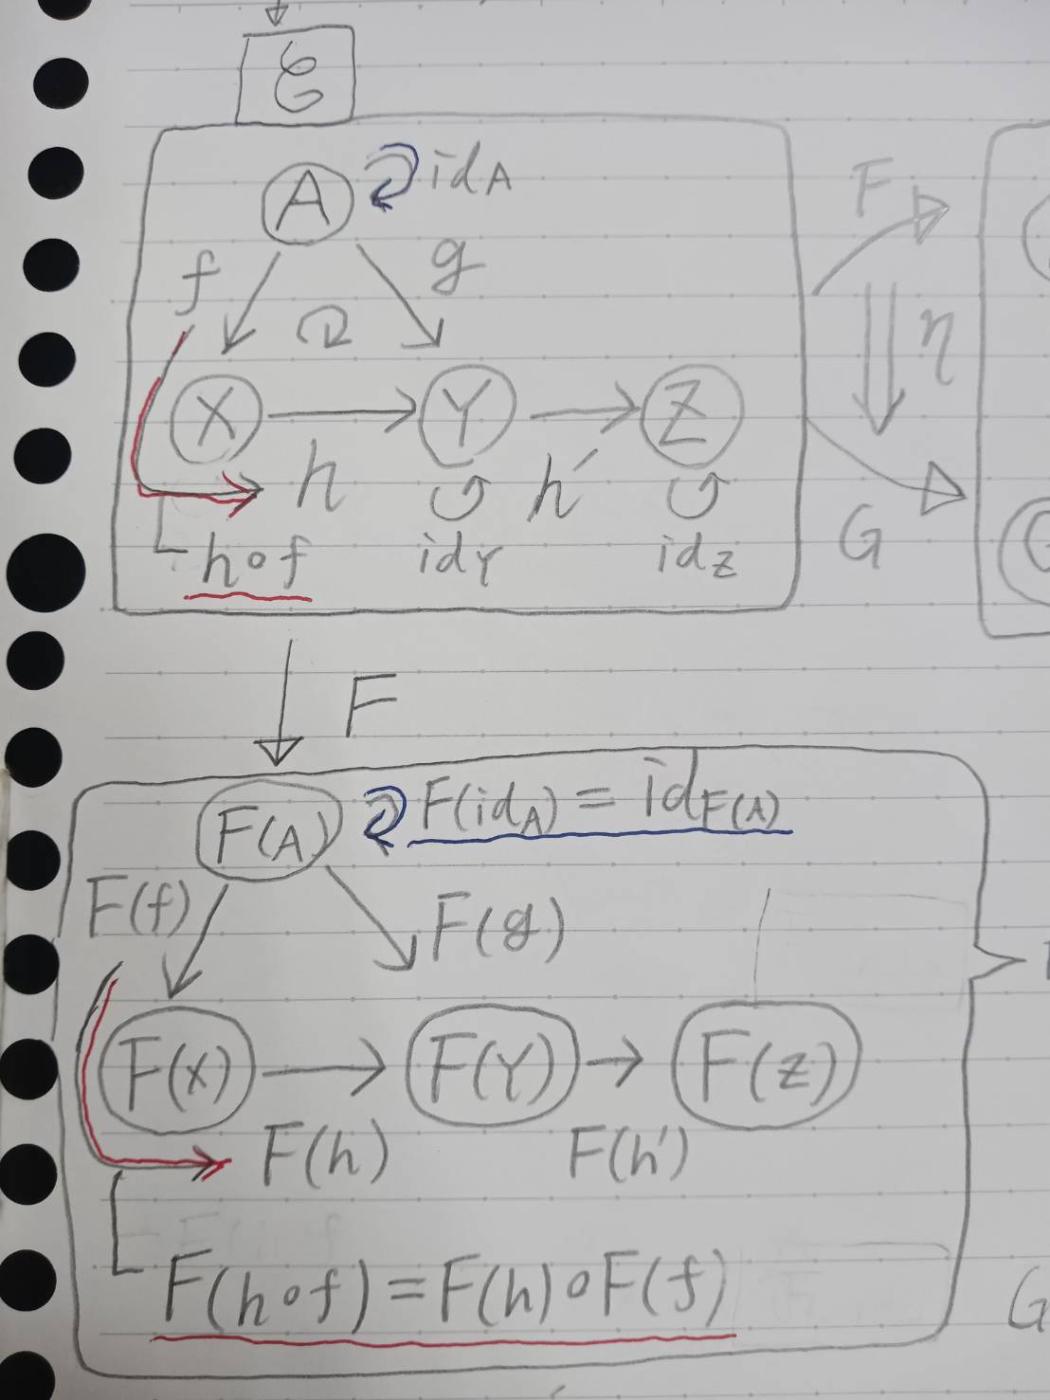 𝒞
A idA
F
f g
η
X Y Z
h h′
G
h∘f idY idZ
F
F(A) F(idA) = idF(A)
F(f) F(g)
F(X) F(Y) F(Z)
F(h) F(h′)
F(h∘f) = F(h)∘F(f)
G